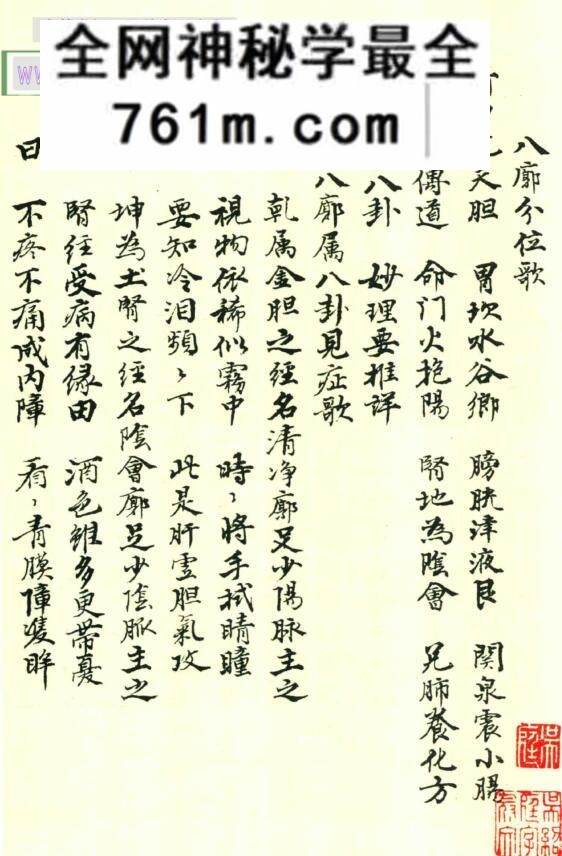 全网神秘学最全
761m.com
八廓分位歌
天胆 胃坎水谷鄉 膀胱津液艮 関泉震小腸
傳道 命门火抱陽 腎地為陰會 兑肺養化方
八卦 妙理要推詳
八廓属八卦見症歌
乾属金胆之經名清净廓足少陽脉主之
視物依稀似霧中 時〻將手拭睛瞳
要知冷泪頻〻下 此是肝虚胆氣攻
坤為土腎之經名陰會廓足少陰脈主之
腎经受病有缘由 酒色雖多更帶憂
日 不疼不痛成内障 看〻青膜障隻眸